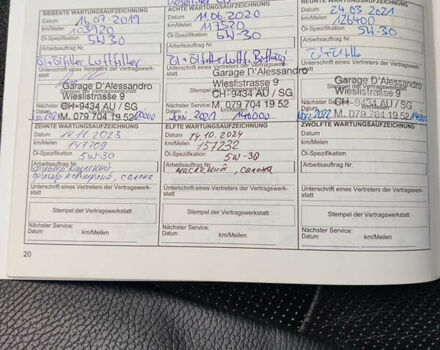 SIEBENTE WARTUNGSAUFZEICHNUNG
Datum 14.07.2019
km/Meilen 103920
Öl-Spezifikation 5W30
Arbeitsauftrag Nr.
Öl+Ölfilter Luftfilter
Unterschrift eines Vertreters der Vertragswerk-
statt
Garage D'Alessandro
Wieslistrasse 9
CH-9434 AU / SG
M. 079 704 19 52
Nächster Service:
Datum
ACHTE WARTUNGSAUFZEICHNUNG
Datum 11.06.2020
km/Meilen 117520
Öl-Spezifikation 5W30
Arbeitsauftrag Nr.
Öl+Ölfilter Luft
Garage D'Alessandro
Wieslistrasse 9
CH-9434 AU / SG
M. 079 704 19 52
Juni 2021 140000
NEUNTE WARTUNGSAUFZEICHNUNG
Datum 24.03.2021
km/Meilen 126400
Öl-Spezifikation 5W30
Arbeitsauftrag Nr.
Unterschrift eines Vertreters der Vertragswerk-
statt
Garage D'Alessandro
Wieslistrasse 9
CH-9434 AU / SG
M. 079 704 19 52
2022
ZEHNTE WARTUNGSAUFZEICHNUNG
Datum 16.11.2023
km/Meilen 147709
Öl-Spezifikation 5W30
Arbeitsauftrag Nr.
фильтр масляный
салона
Unterschrift eines Vertreters der Vertragswerk-
statt
Stempel der Vertragswerkstatt
Nächster Service:
Datum km/Meilen
ELFTE WARTUNGSAUFZEICHNUNG
Datum 14.10.2024
km/Meilen 157232
Öl-Spezifikation 5W-30
Arbeitsauftrag Nr.
масляный, салона
Unterschrift eines Vertreters der Vertragswerk-
statt
Stempel der Vertragswerkstatt
Nächster Service:
Datum km/Meilen
ZWÖLFTE WARTUNGSAUFZEICHNUNG
Datum
km/Meilen
Öl-Spezifikation
Arbeitsauftrag Nr.
Unterschrift eines Vertreters der Vertragswerk-
statt
Stempel der Vertragswerkstatt
Nächster Service:
Datum km/Meilen
20